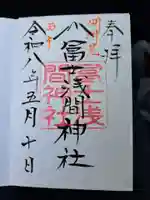 奉拝
冨士浅間神社
令和八年五月十日
冨士浅
間神社